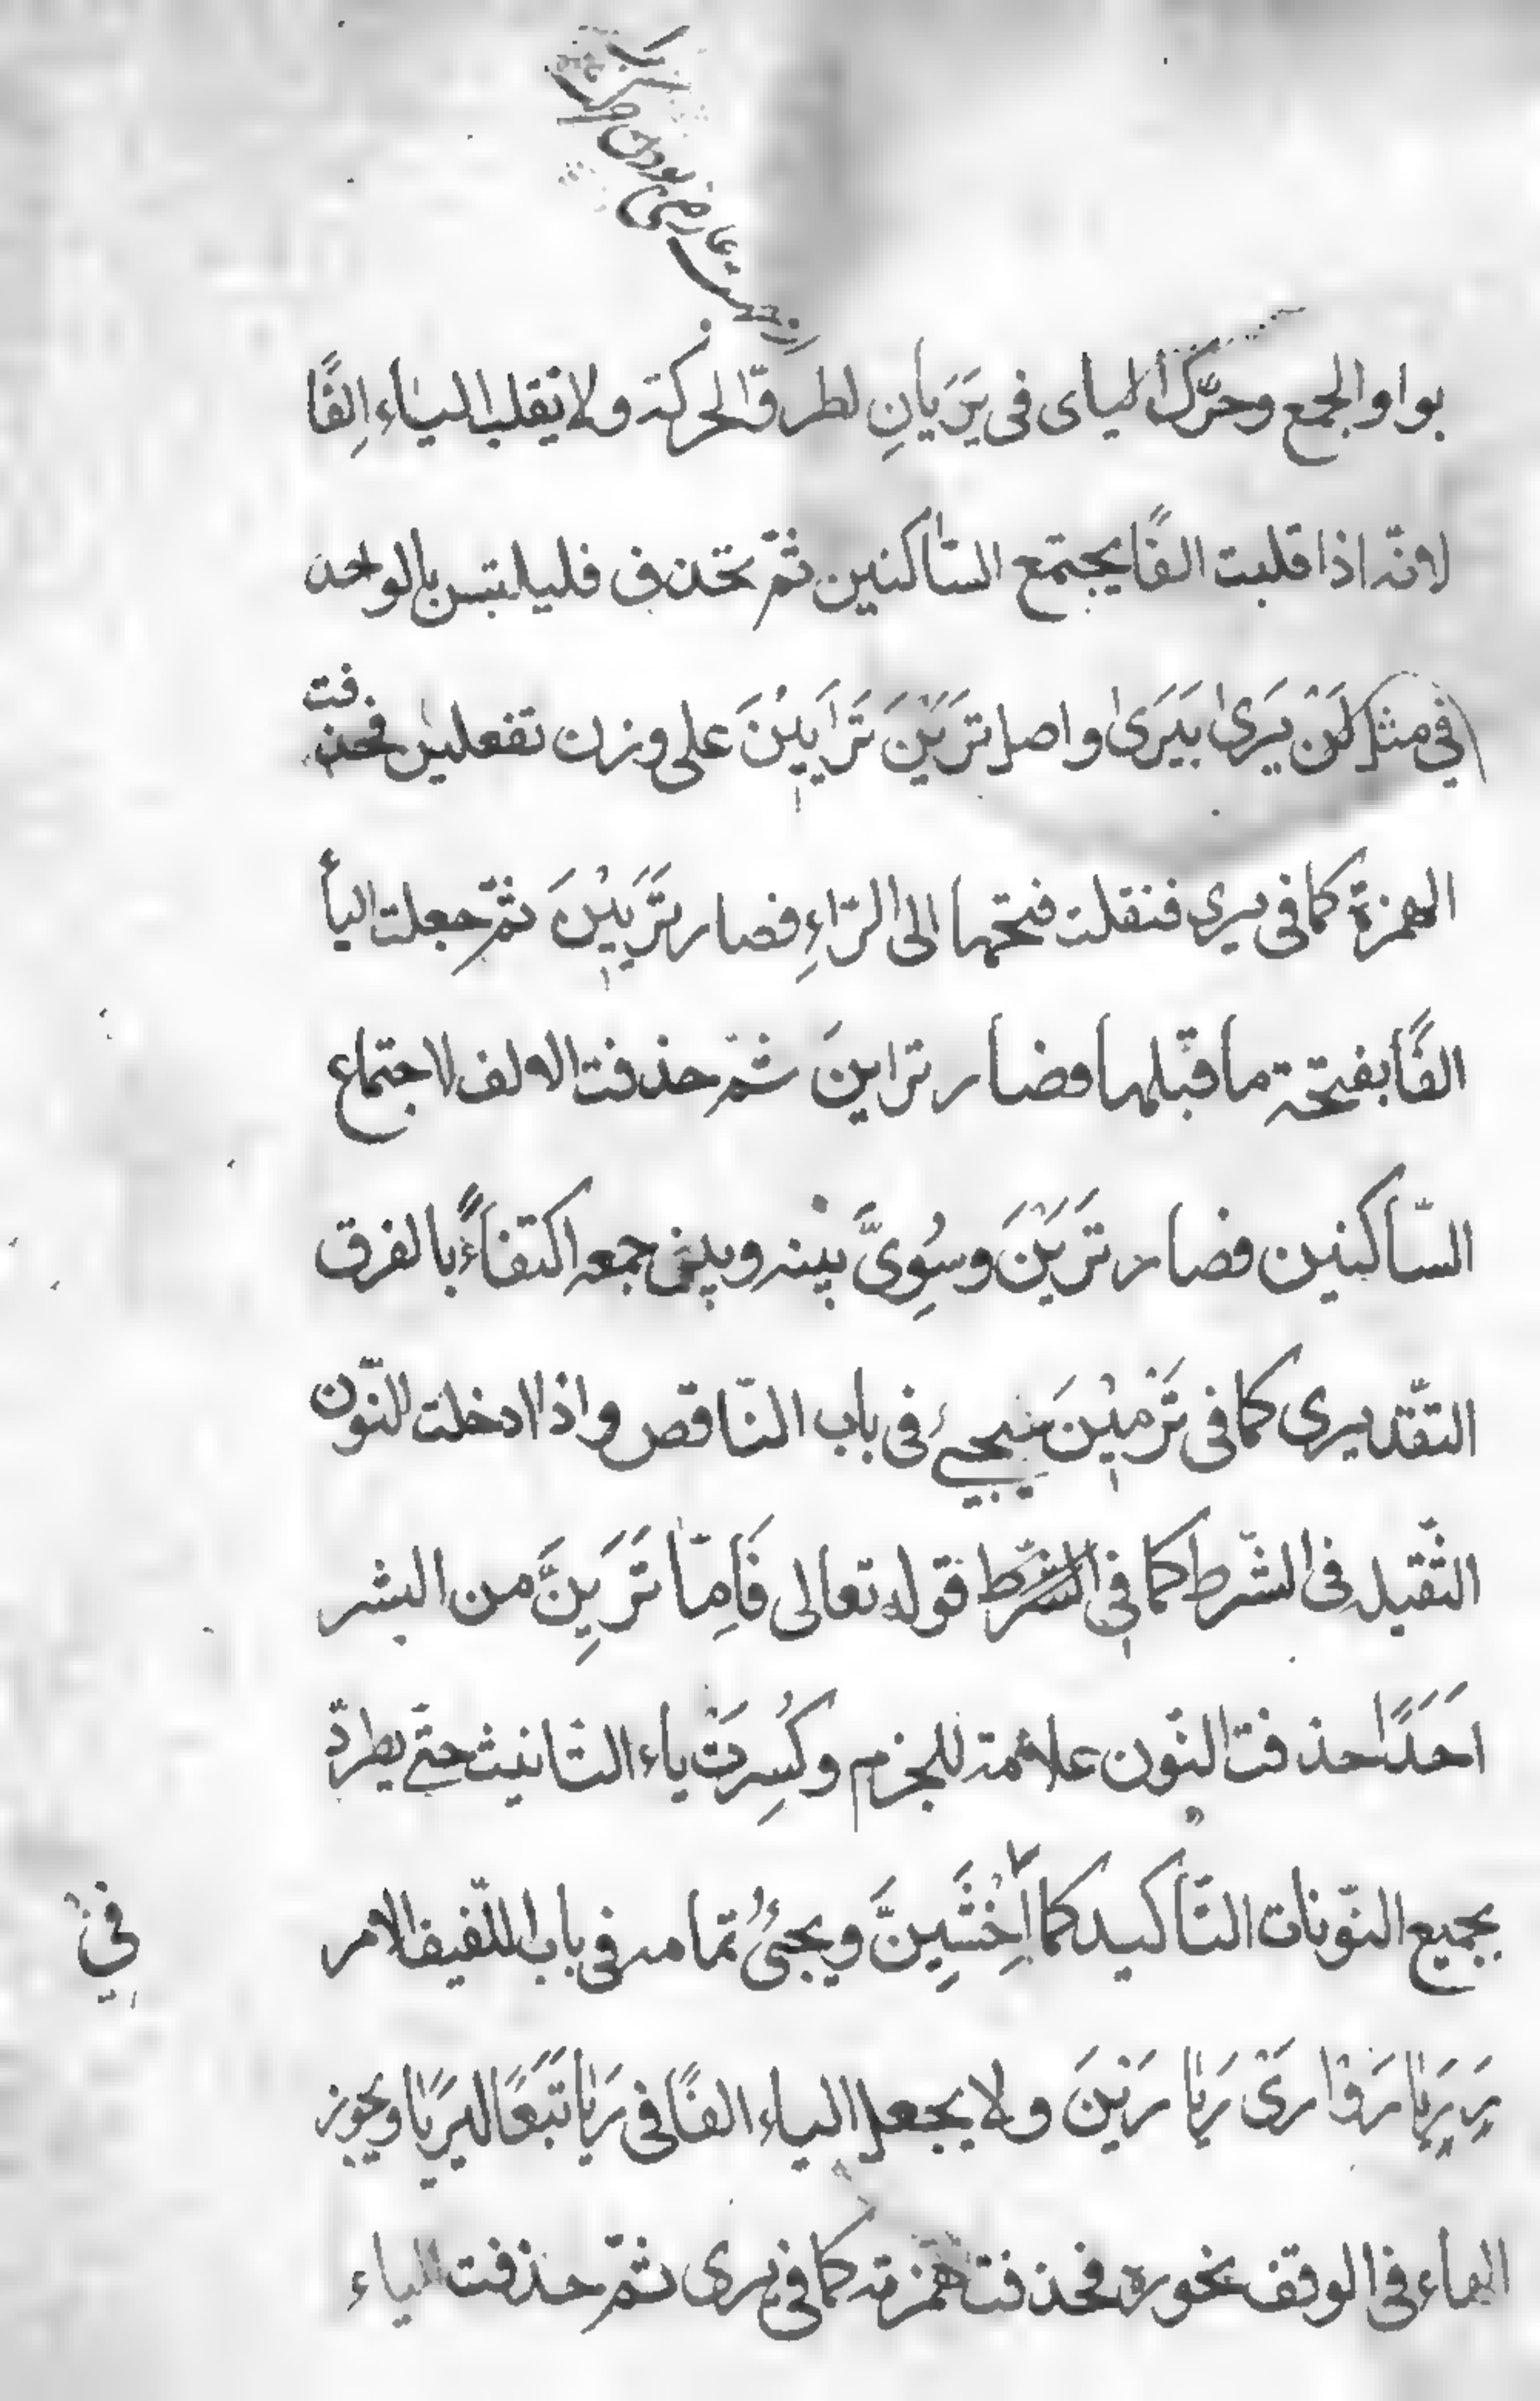 بواو الجمع وحرّك الياى فى يَرَيانِ لطروّ الحركة ولا تقلب الياء اِلفًا
لانّه اذا قلبت الفًا يجتمع السّاكنين ثمّ تحذف فليلتبس بالواحد
فى مثل لَنْ يَرىٰ يَيَرىٰ واصل تَرَيْنَ تَرْاَيِيْنَ على وزن تفعلين فحذفت
الهمزة كما فى يرى فنقلت فتحتها الى الرّاءِ فصار تَرَيِيْنَ ثمّ جعلت اليأ
الفًا بفتحة ما قبلها فصار تراينَ ثمّ حذفت الالف لاجتماع
السّاكنين فصار تَرَيْنَ وسُوِىَّ بينه وبين جمعه اكتفاءً بالفرق
التقّديرى كما فى تَرْمِيْنَ سيجيئ فى باب النّاقص واذا ادخلت النّون
الثّقيلة فى الشّرط كما فى الشرط قوله تعالى فَاِمّا تَرَيِنَّ من البشر
اَحَدًا حذفت النّون علامة للجزم وكُسِرَتْ ياء التّانيث حتّى يطردّ
بجميع النّونات التّاكيد كما اِخْشَيِنَّ ويجئُ تمامه فى باب اللّفيف الامر
فى
رَ رَيا رَوْا رَىْ رَيا رَيْنَ ولا يجعل الياء الفًا فى رَيا تَبَعًا ليَرَيا ويجوز
الهاء فى الوقف نحو ره فحذفت همزته كما فى يرى ثمّ حذفت الياء